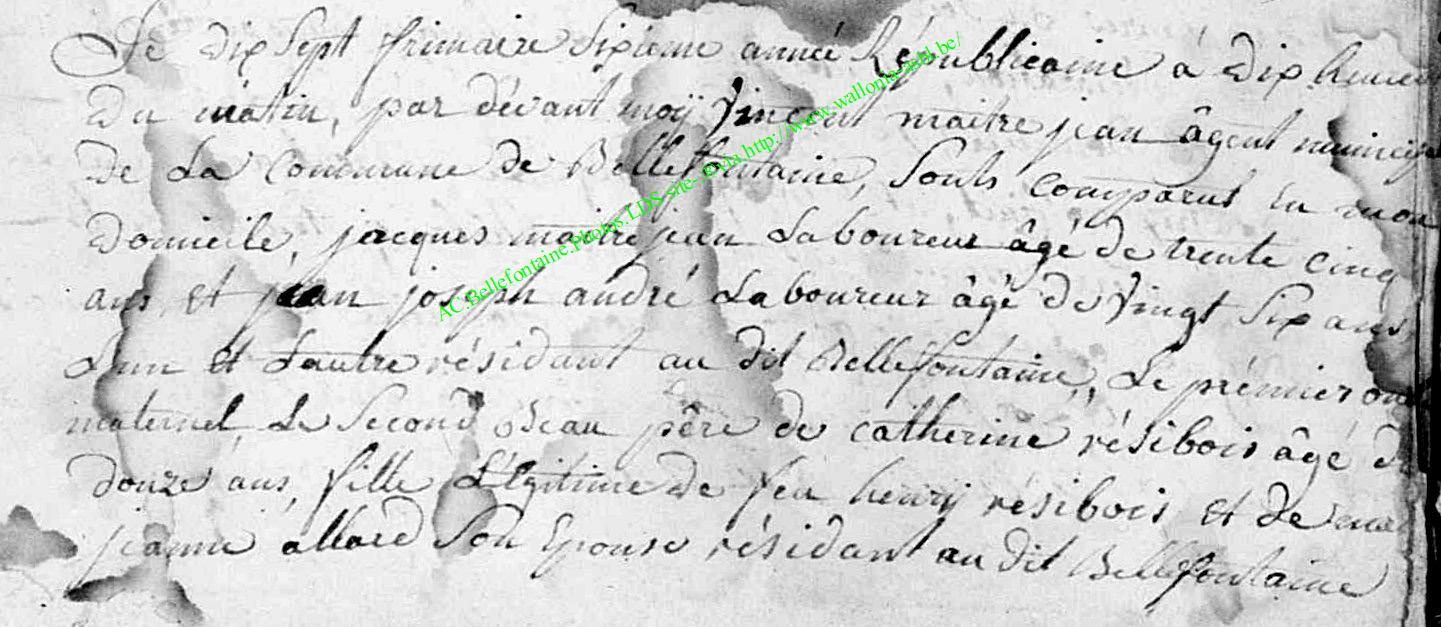 Le dix Sept frimaire Sixieme année Républicaine à dix heures
du matin, par dévant moÿ Vincent maitrejean âgent municipal
de La Commune de Bellefontaine, Souls comparut en mon
domicile, jacques maitrejean Laboureur âgé de trente cinq
ans et jean joseph andré Laboureur âgé de Vingt Six ans
L'un et L'autre résidant au dit Bellefontaine, Le prémier
maternel Le Second Beau pére de catherine résibois âgé de
douze ans, fille Légitime de feu henrÿ résibois et de
jeanne allard Son Epouse résidant au dit Bellefontaine
AC.Bellefontaine.Photos.LDS site- http://www.wallonia-asbl.be/